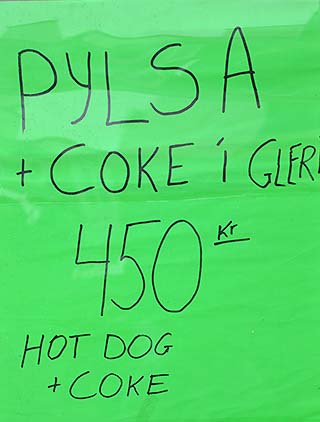 PYLSA
+ COKE Í GLERI
450 Kr
HOT DOG
+ COKE